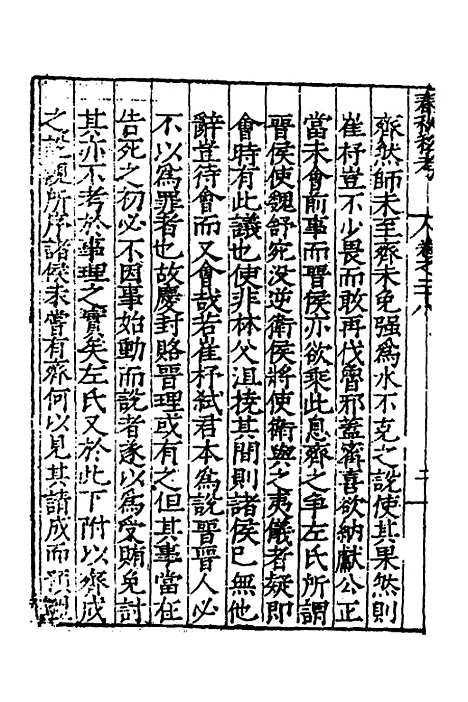 春秋移考 卷之二十八 二十一
齊然師未至齊未免強爲水不克之說使其果然則
崔杼豈不少畏而敢再伐魯邪蓋齊喜欲納獻公正
當未會前事而晉侯亦欲乘此息齊之争左氏所謂
晉侯使魏舒宛没逆衛侯將使衛與之夷儀者疑即
會時有此議也使非林父沮撓其間則諸侯已無他
辭豈待會而又會哉若崔杼弑君本爲說晉晉人必
不以爲罪者也故慶封賂晉理或有之但其事當在
告死之初必不因事始動而說者遂以爲受賄免討
其亦不考於事理之實矣左氏又於此下附以齊成
之 所序諸侯未嘗有齊何以見其請成而